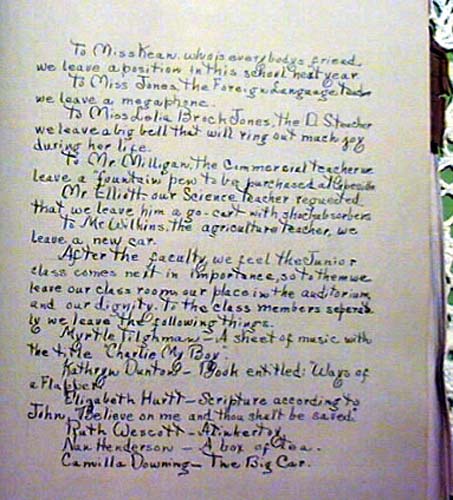 To Miss Kean, who is everybodys friend
we leave a position in this school next year.
To Miss Jones, the Foreign Language teacher
we leave a megaphone.
To Miss Lelia Broch Jones, the D. S teacher
we leave a big bell that will ring out much joy
during her life.
To Mr. Milligan, the Commercial teacher we
leave a fountain pen to be purchased at
Mr. Elliott, our Science teacher requested
that we leave him a go-cart with shock absorbers
To Mr. Wilkins, the agriculture teacher, we
leave a new car.
After the faculty, we feel the Junior
class comes next in importance, so to them we
leave our class room, our place in the auditorium,
and our dignity. To the class members seperate
ly we leave the following things.
Myrtle Tilghman - A sheet of music with
the title "Charlie My Boy.
Kathryn Dunton - Book entitled: "Ways of
a Flapper"
Elizabeth Hurtt - Scripture according to
John, "Believe on me and thou shalt be saved."
Ruth Wescott - A tinkertoy.
Nan Henderson - A box of tea.
Camilla Downing - The Big Car.